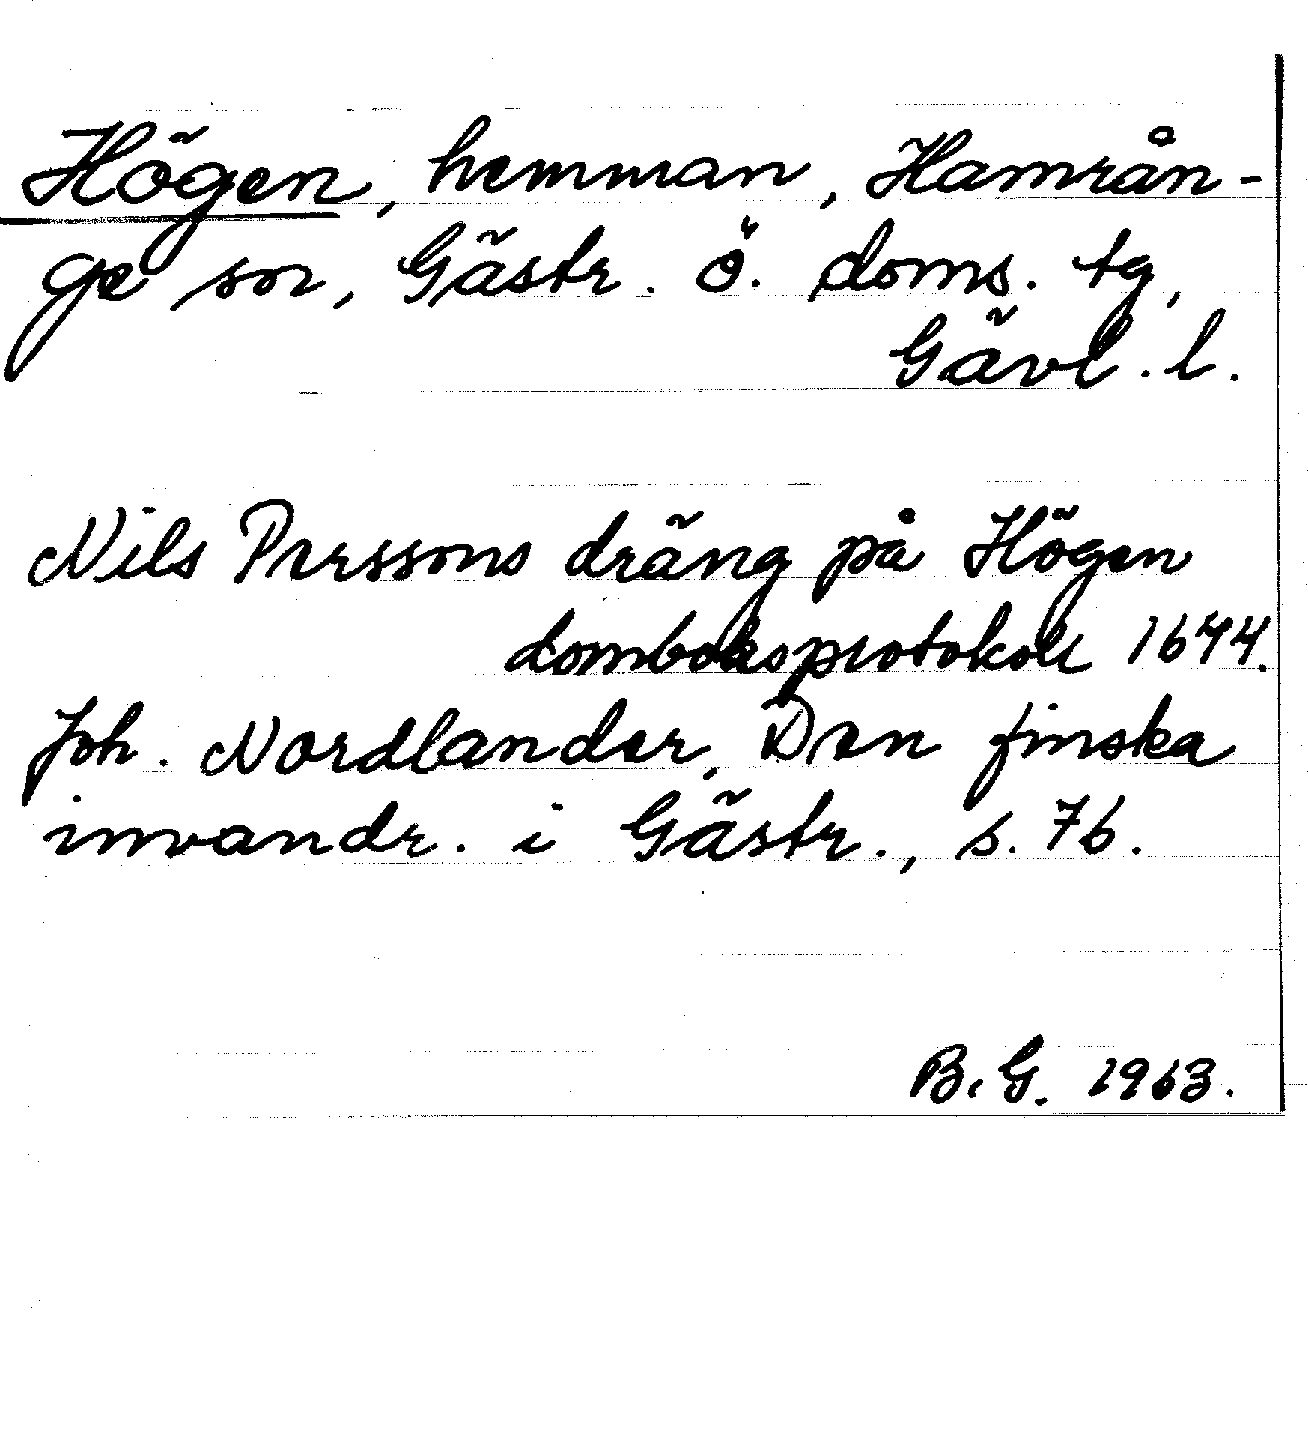 Högen, hemman, Hamrån-
ge sor, Gästr. ö. doms. tg,
Gävl. l.
Nils Perssons dräng på Högen
domboksprotokoll 1644.
Joh. Nordlander, Den finska
invandr. i Gästr., s. 76.
B.G. 1963.